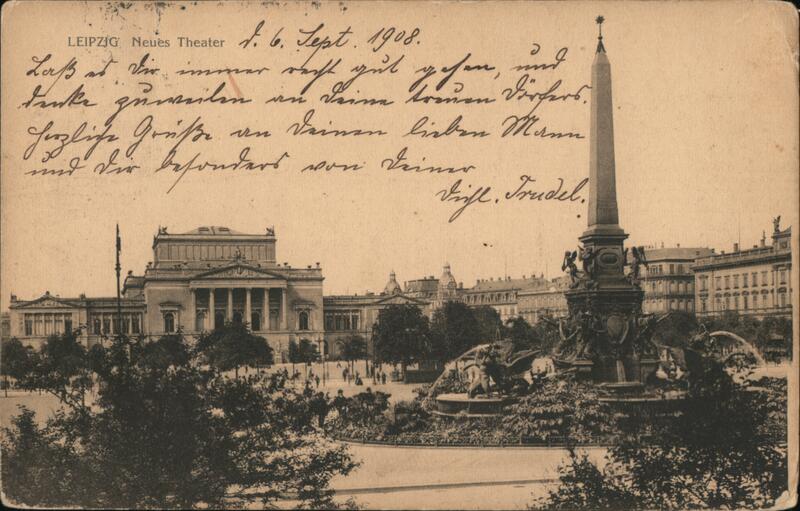 LEIPZIG Neues Theater d. 6. Sept. 1908.
Laß es Dir immer recht gut gehen, und
denke zuweilen an Deine treuen Dörfers.
Herzliche Grüße an Deinen lieben Mann
und Dir besonders von Deiner
Dich l. Trudel.